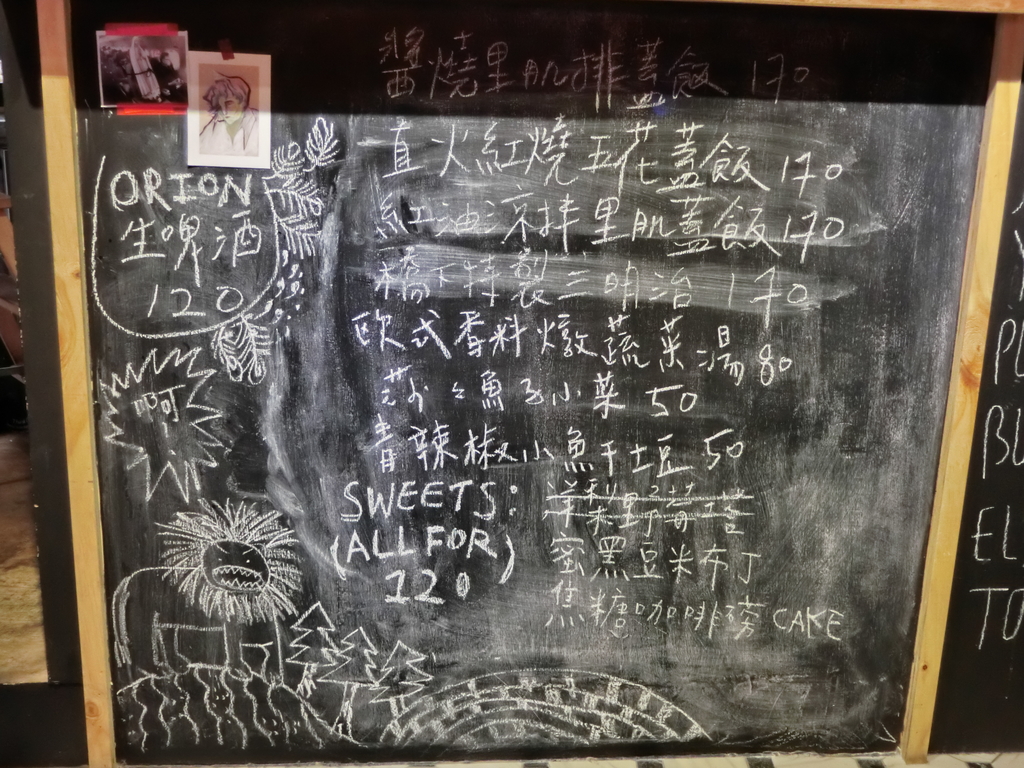 醬燒里肌排蓋飯 170
直火紅燒五花蓋飯 170
紅油涼拌里肌蓋飯 170
橋下特製三明治 170
歐式香料燉蔬菜湯 80
魚子小菜 50
青辣椒小魚干土豆 50
SWEETS:
(ALL FOR)
120
洋梨野莓塔
蜜黑豆米布丁
焦糖咖啡磅 CAKE
ORION
生啤酒
120
啊!
PL
BU
EL
TO